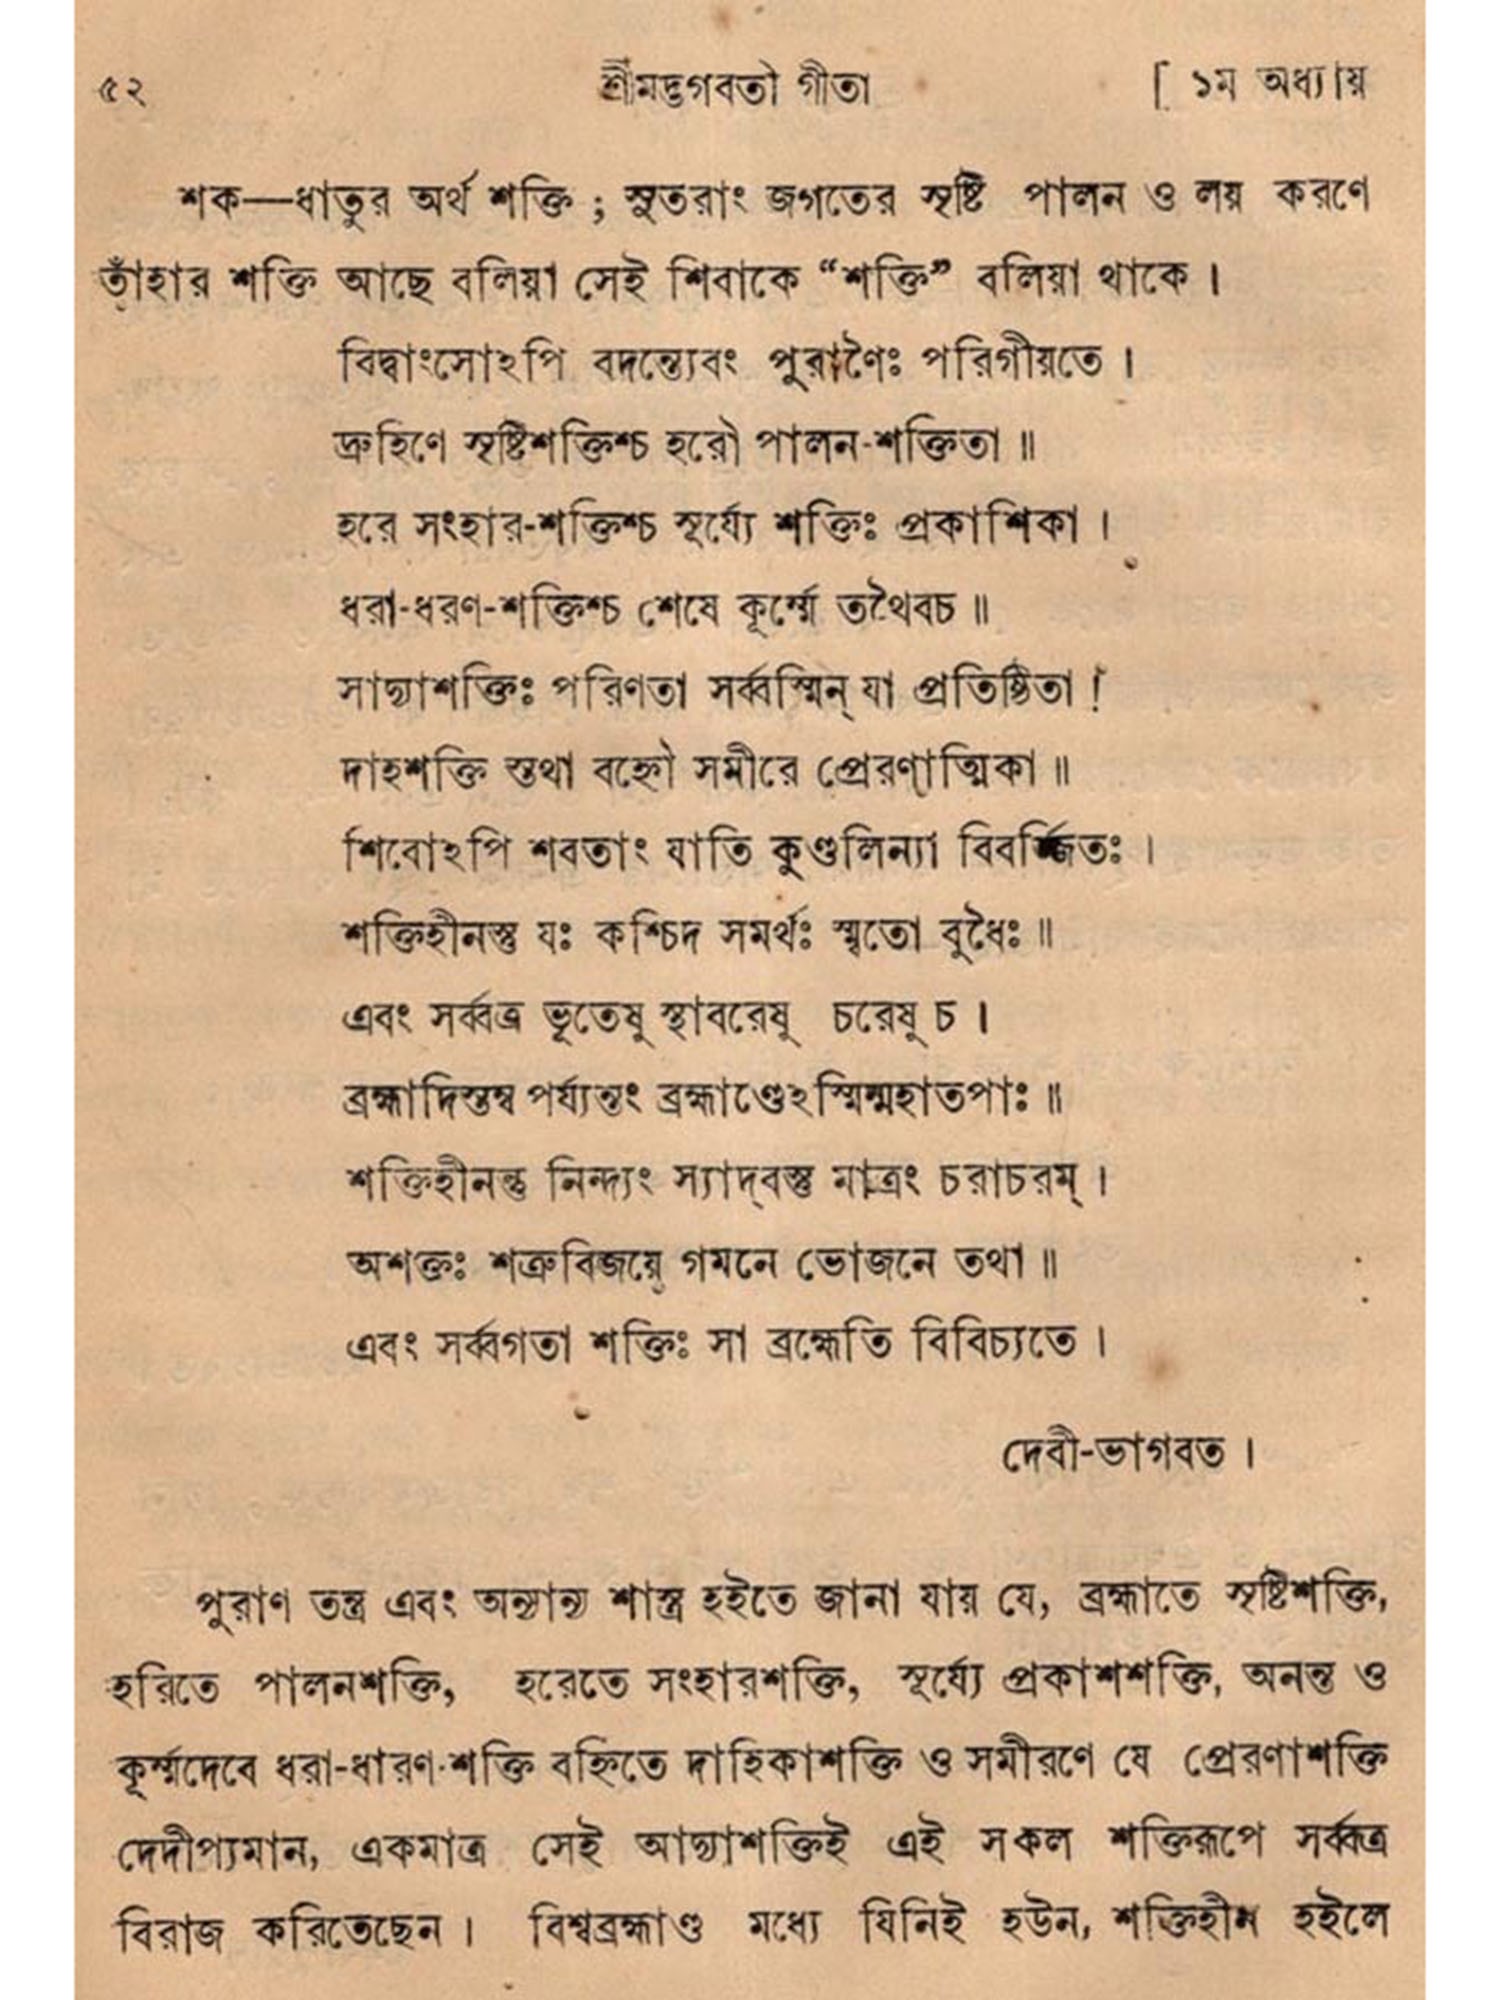 ৫২ শ্রীমদ্ভগবতী গীতা [ ১ম অধ্যায়
শক—ধাতুর অর্থ শক্তি ; সুতরাং জগতের সৃষ্টি পালন ও লয় করণে
তাঁহার শক্তি আছে বলিয়া সেই শিবাকে “শক্তি” বলিয়া থাকে ।
বিদ্বাংসোঽপি বদন্ত্যেবং পুরাণৈঃ পরিগীয়তে ।
দ্রুহিণে সৃষ্টিশক্তিশ্চ হরৌ পালন-শক্তিতা ॥
হরে সংহার-শক্তিশ্চ সূর্য্যে শক্তিঃ প্রকাশিকা ।
ধরা-ধরণ-শক্তিশ্চ শেষে কূর্ম্মে তথৈবচ ॥
সাদ্যাশক্তিঃ পরিণতা সর্ব্বস্মিন্ যা প্রতিষ্ঠিতা !
দাহশক্তি স্তথা বহ্নৌ সমীরে প্রেরণাত্মিকা ॥
শিবোঽপি শবতাং যাতি কুণ্ডলিন্যা বিবর্জ্জিতঃ ।
শক্তিহীনস্তু যঃ কশ্চিদ সমর্থঃ স্মৃতো বুধৈঃ ॥
এবং সর্ব্বত্র ভূতেষু স্থাবরেষু চরেষু চ ।
ব্রহ্মাদিস্তম্ব পর্য্যন্তং ব্রহ্মাণ্ডেঽস্মিন্মহাতপাঃ ॥
শক্তিহীনন্তু নিন্দ্যং স্যাদ্‌বস্তু মাত্রং চরাচরম্ ।
অশক্তঃ শত্রুবিজয়ে গমনে ভোজনে তথা ॥
এবং সর্ব্বগতা শক্তিঃ সা ব্রহ্মেতি বিবিচ্যতে ।
দেবী-ভাগবত ।
পুরাণ তন্ত্র এবং অন্যান্য শাস্ত্র হইতে জানা যায় যে, ব্রহ্মাতে সৃষ্টিশক্তি,
হরিতে পালনশক্তি, হরেতে সংহারশক্তি, সূর্য্যে প্রকাশশক্তি, অনন্ত ও
কূর্ম্মদেবে ধরা-ধারণ-শক্তি বহ্নিতে দাহিকাশক্তি ও সমীরণে যে প্রেরণাশক্তি
দেদীপ্যমান, একমাত্র সেই আদ্যাশক্তিই এই সকল শক্তিরূপে সর্ব্বত্র
বিরাজ করিতেছেন । বিশ্বব্রহ্মাণ্ড মধ্যে যিনিই হউন, শক্তিহীন হইলে